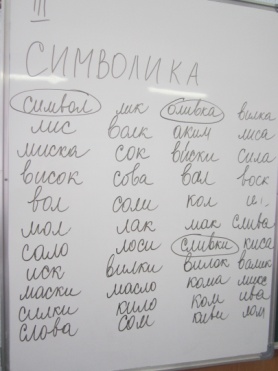 III
СИМВОЛИКА
символ лик оливка вилка
лис валк аким лиса
миска сок виски сила
висок сова вал воск
вол соли кол
мол лак мак слива
сало лоси сливки киса
иск вилки вилок валик
маски масло кома микс
силки кило ком ива
слова сом киви лом